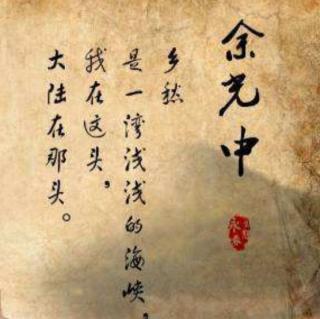 余光中
乡愁
是一湾浅浅的海峡，
我在这头，
大陆在那头。